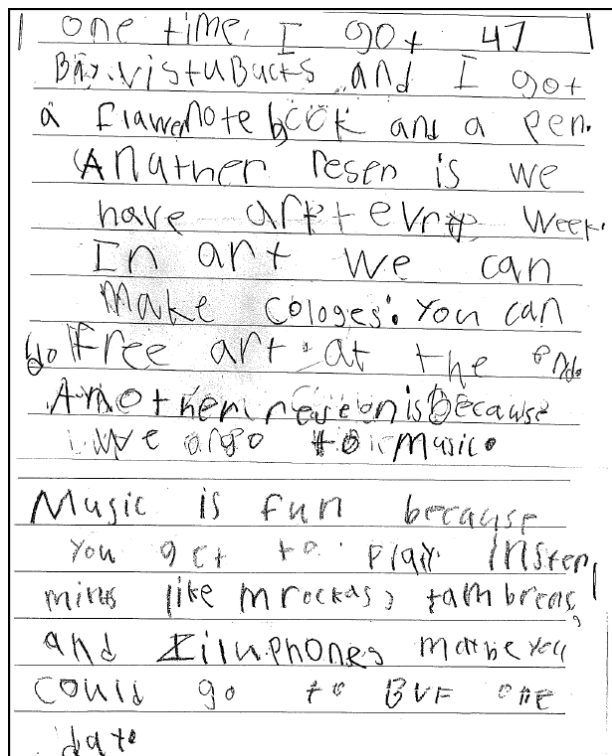 one time, I got 47
Bay.vistuBucts and I got
a flawernote book and a pen.
Anather resen is we
have art evry week.
In art we can
make cologes. You can
do free art at the end.
Another reseon is because
we go to music.
Music is fun because
You get to play insten
mints like mrockas, tambreens,
and Ziluphones maybe you
could go to BVF one
date